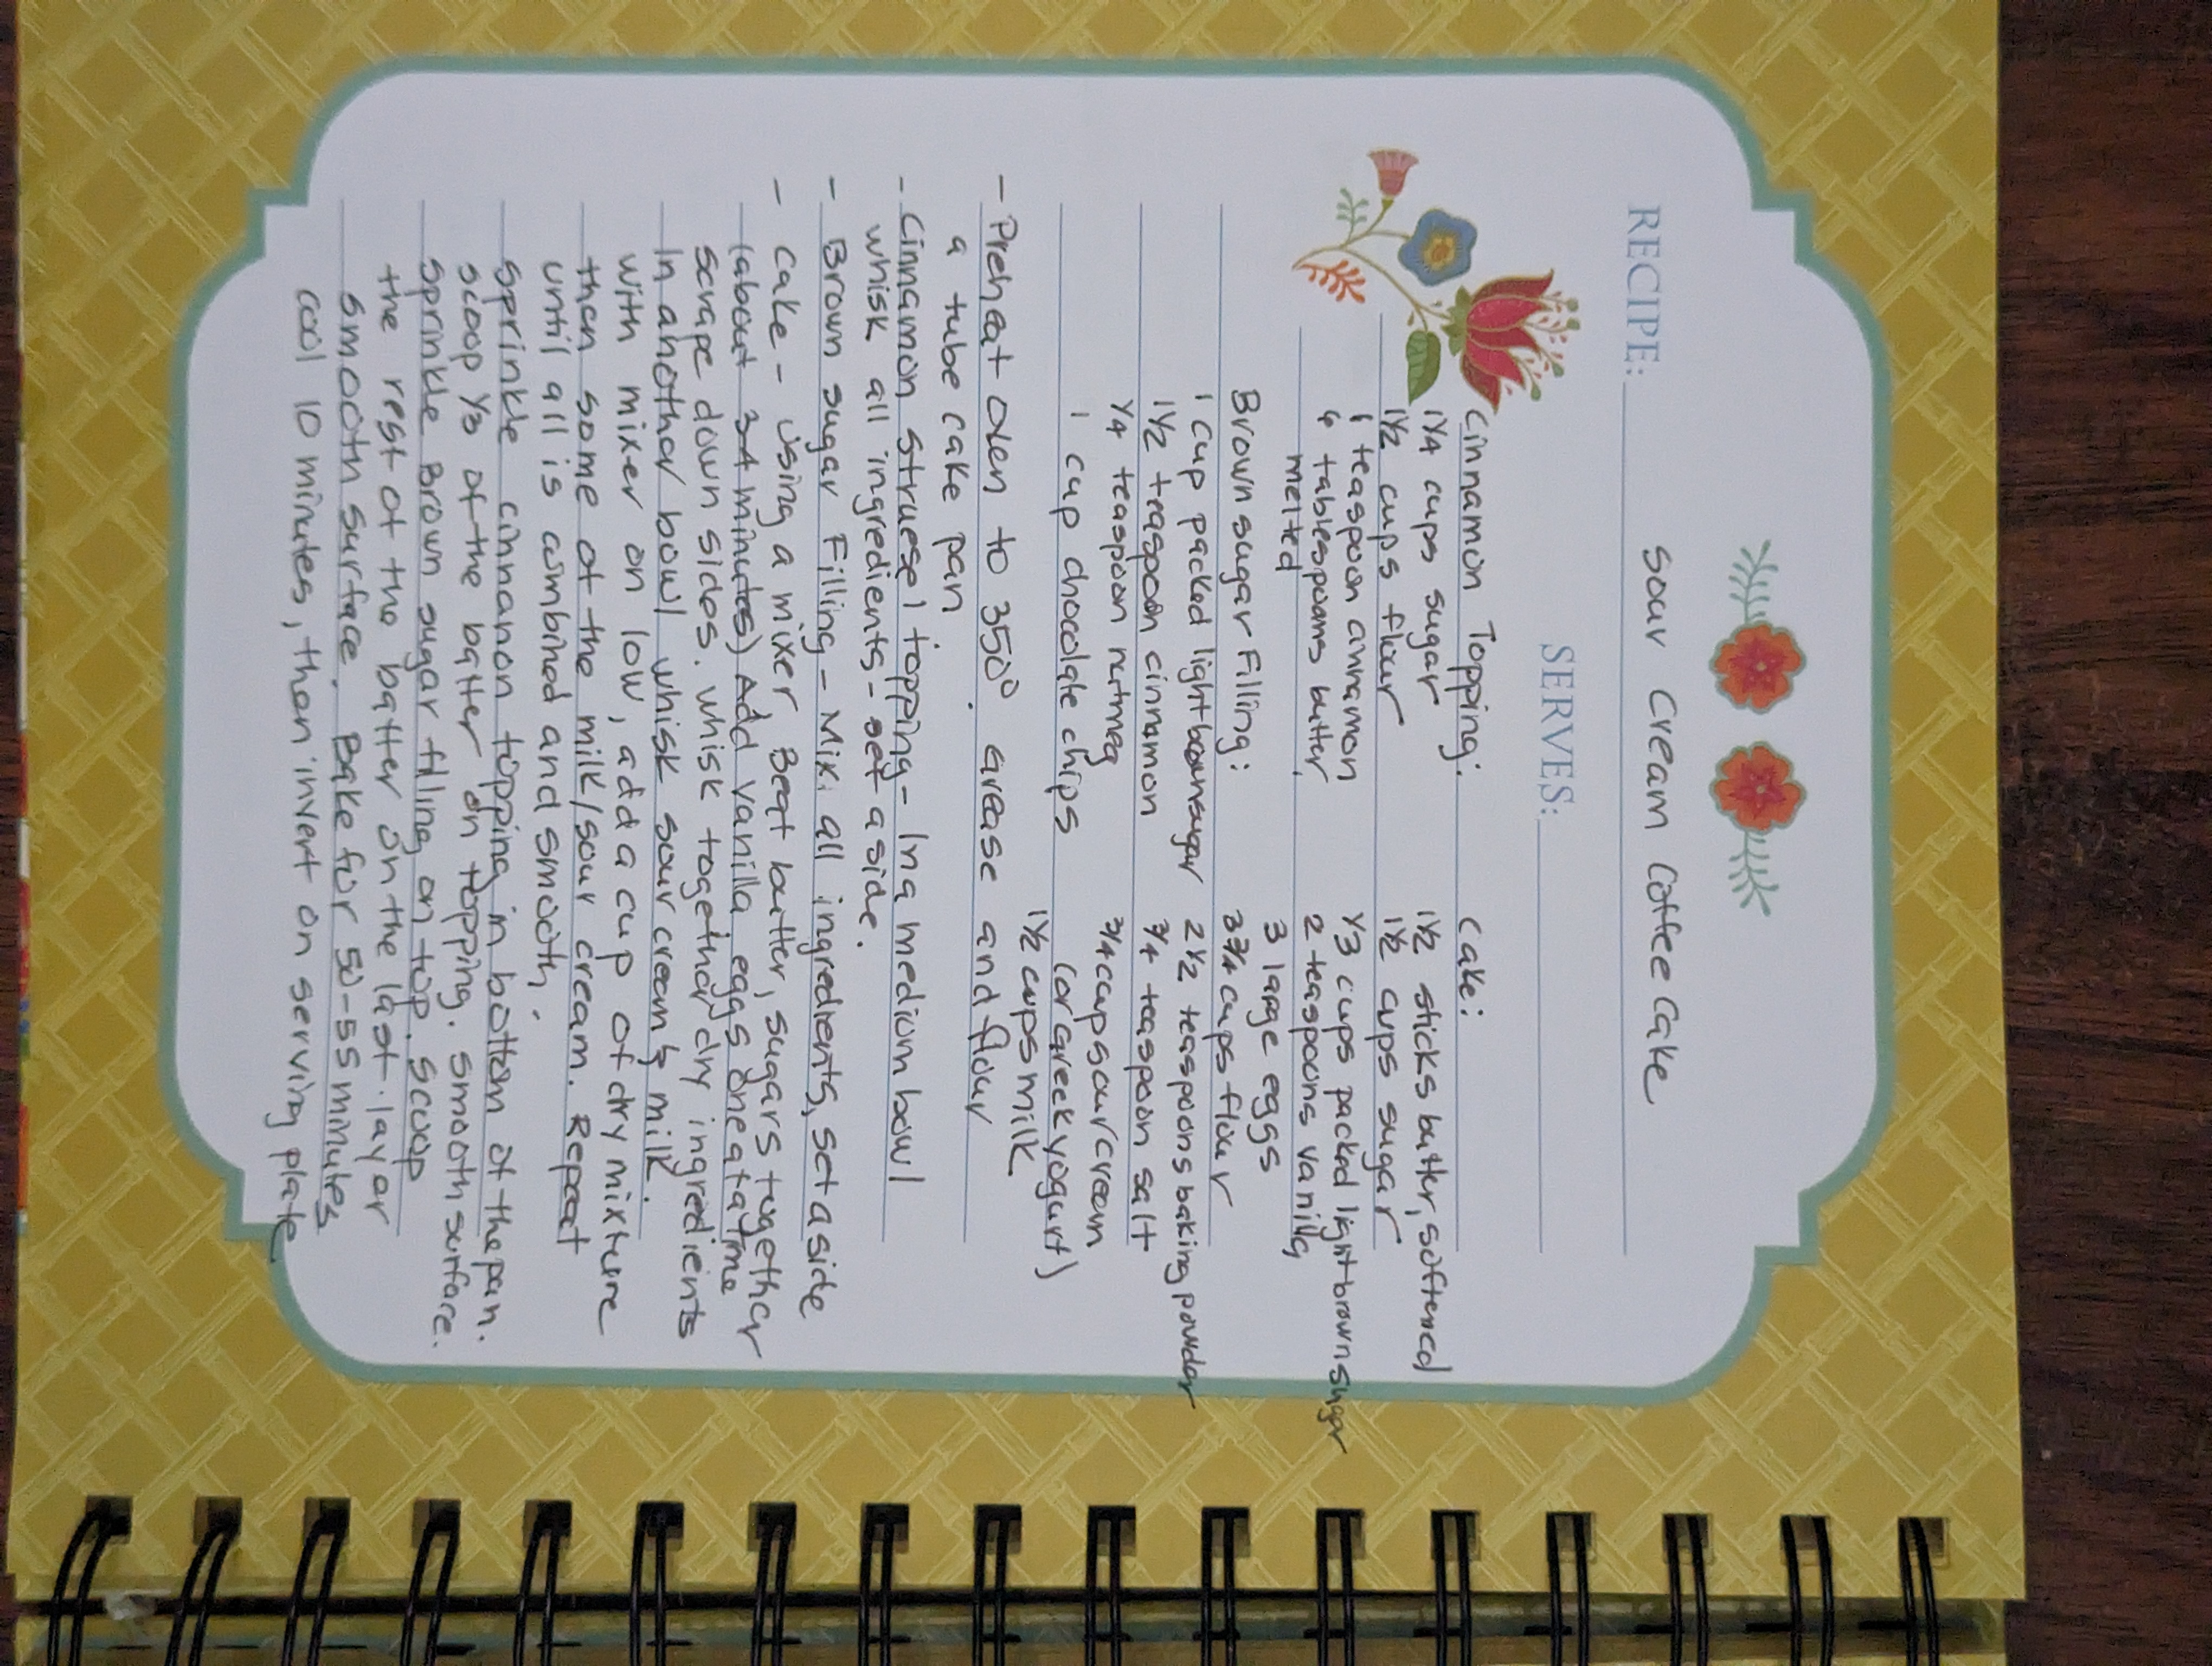 RECIPE: Sour Cream Coffee Cake
SERVES:
Cinnamon Topping:
1 1/4 cups sugar
1 1/2 cups flour
1 teaspoon cinnamon
6 tablespoons butter,
melted
Brown sugar Filling:
1 cup packed light brown sugar
1 1/2 teaspoon cinnamon
1/4 teaspoon nutmeg
1 cup chocolate chips
Cake:
1 1/2 sticks butter, softened
1 1/2 cups sugar
1/3 cups packed light brown sugar
2 teaspoons vanilla
3 large eggs
3 3/4 cups flour
2 1/2 teaspoons baking powder
3/4 teaspoon salt
3/4 cup sour cream
(or Greek yogurt)
1 1/2 cups milk
- Preheat oven to 350°. Grease and flour
a tube cake pan.
- Cinnamon struesel topping - In a medium bowl
whisk all ingredients - set aside.
- Brown sugar Filling - Mix all ingredients, set aside
- Cake - using a mixer, Beat butter, sugars together
(about 3-4 minutes) Add vanilla, eggs one at a time
scrape down sides. Whisk together dry ingredients
In another bowl whisk sour cream & milk.
with mixer on low, add a cup of dry mixture
then some of the milk/sour cream. Repeat
until all is combined and smooth.
Sprinkle cinnanon topping in bottom of the pan.
Scoop 1/3 of the batter on topping. Smooth surface.
Sprinkle Brown sugar filling on top. Scoop
the rest of the batter on the last layer
smooth surface. Bake for 50-55 minutes
cool 10 minutes, then invert on serving plate